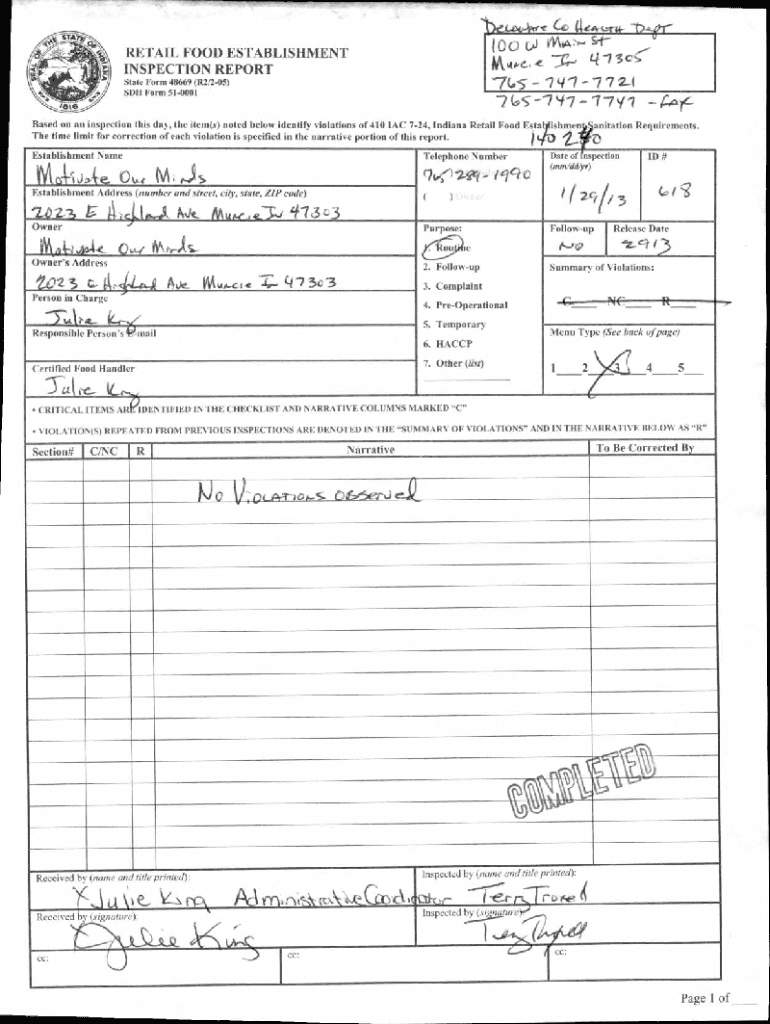 Delaware Co Health Dept
100 W Main St
Muncie In 47305
765-747-7721
765-747-7747 - fax
RETAIL FOOD ESTABLISHMENT
INSPECTION REPORT
State Form 48669 (R2/2-05)
SDH Form 51-0001
Based on an inspection this day, the item(s) noted below identify violations of 410 IAC 7-24, Indiana Retail Food Establishment Sanitation Requirements.
The time limit for correction of each violation is specified in the narrative portion of this report.
Establishment Name
Motivate Our Minds
Telephone Number
765 289-1990
( ) Owner
Date of Inspection
(mm/dd/yr)
1/29/13
ID #
618
Establishment Address (number and street, city, state, ZIP code)
2023 E Highland Ave Muncie In 47303
Owner
Motivate Our Minds
Owner's Address
2023 E Highland Ave Muncie In 47303
Person in Charge
Responsible Person's E-mail
Certified Food Handler
Purpose:
1. Routine
2. Follow-up
3. Complaint
4. Pre-Operational
5. Temporary
6. HACCP
7. Other (list)
Follow-up
No
Release Date
2913
Summary of Violations:
C____ NC____ R____
Menu Type (See back of page)
1____2____3____4____5____
• CRITICAL ITEMS ARE IDENTIFIED IN THE CHECKLIST AND NARRATIVE COLUMNS MARKED "C"
• VIOLATION(S) REPEATED FROM PREVIOUS INSPECTIONS ARE DENOTED IN THE "SUMMARY OF VIOLATIONS" AND IN THE NARRATIVE BELOW AS "R"
Section# C/NC R Narrative To Be Corrected By
No Violations observed
COMPLETED
Received by (name and title printed):
X Julie King Administrative Coordinator
Inspected by (name and title printed):
Terry Troxell
Received by (signature):
X Julie King
Inspected by (signature):
cc: cc: cc:
Page 1 of ____